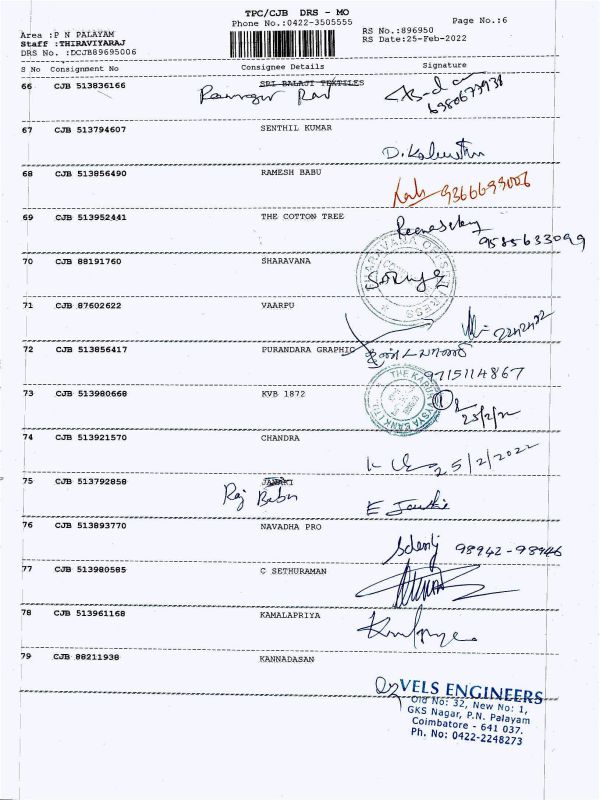 TPC/CJB DRS - MO
Phone No.:0422-3505555
Page No.:6
Area :P N PALAYAM
Staff :THIRAVIYARAJ
DRS No. :DCJB89695006
RS No.:896950
RS Date:25-Feb-2022
S No Consignment No Consignee Details Signature
66 CJB 513836166 SRI BALAJI TEXTILES
6380673938
67 CJB 513794607 SENTHIL KUMAR
68 CJB 513856490 RAMESH BABU
9366699006
69 CJB 513952441 THE COTTON TREE
9585633099
70 CJB 88191760 SHARAVANA
SHARAVANA OFFSET PRESS
71 CJB 87602622 VAARPU
72 CJB 513856417 PURANDARA GRAPHIC
9715114867
73 CJB 513980668 KVB 1872
THE KARUR VYSYA BANK LTD.
25/2/22
74 CJB 513921570 CHANDRA
25/2/2022
75 CJB 513792858 JANAKI
Raj Babu
76 CJB 513893770 NAVADHA PRO
98942-98946
77 CJB 513980585 C SETHURAMAN
78 CJB 513961168 KAMALAPRIYA
79 CJB 88211938 KANNADASAN
VELS ENGINEERS
Old No: 32, New No: 1,
GKS Nagar, P.N. Palayam
Coimbatore - 641 037.
Ph. No: 0422-2248273